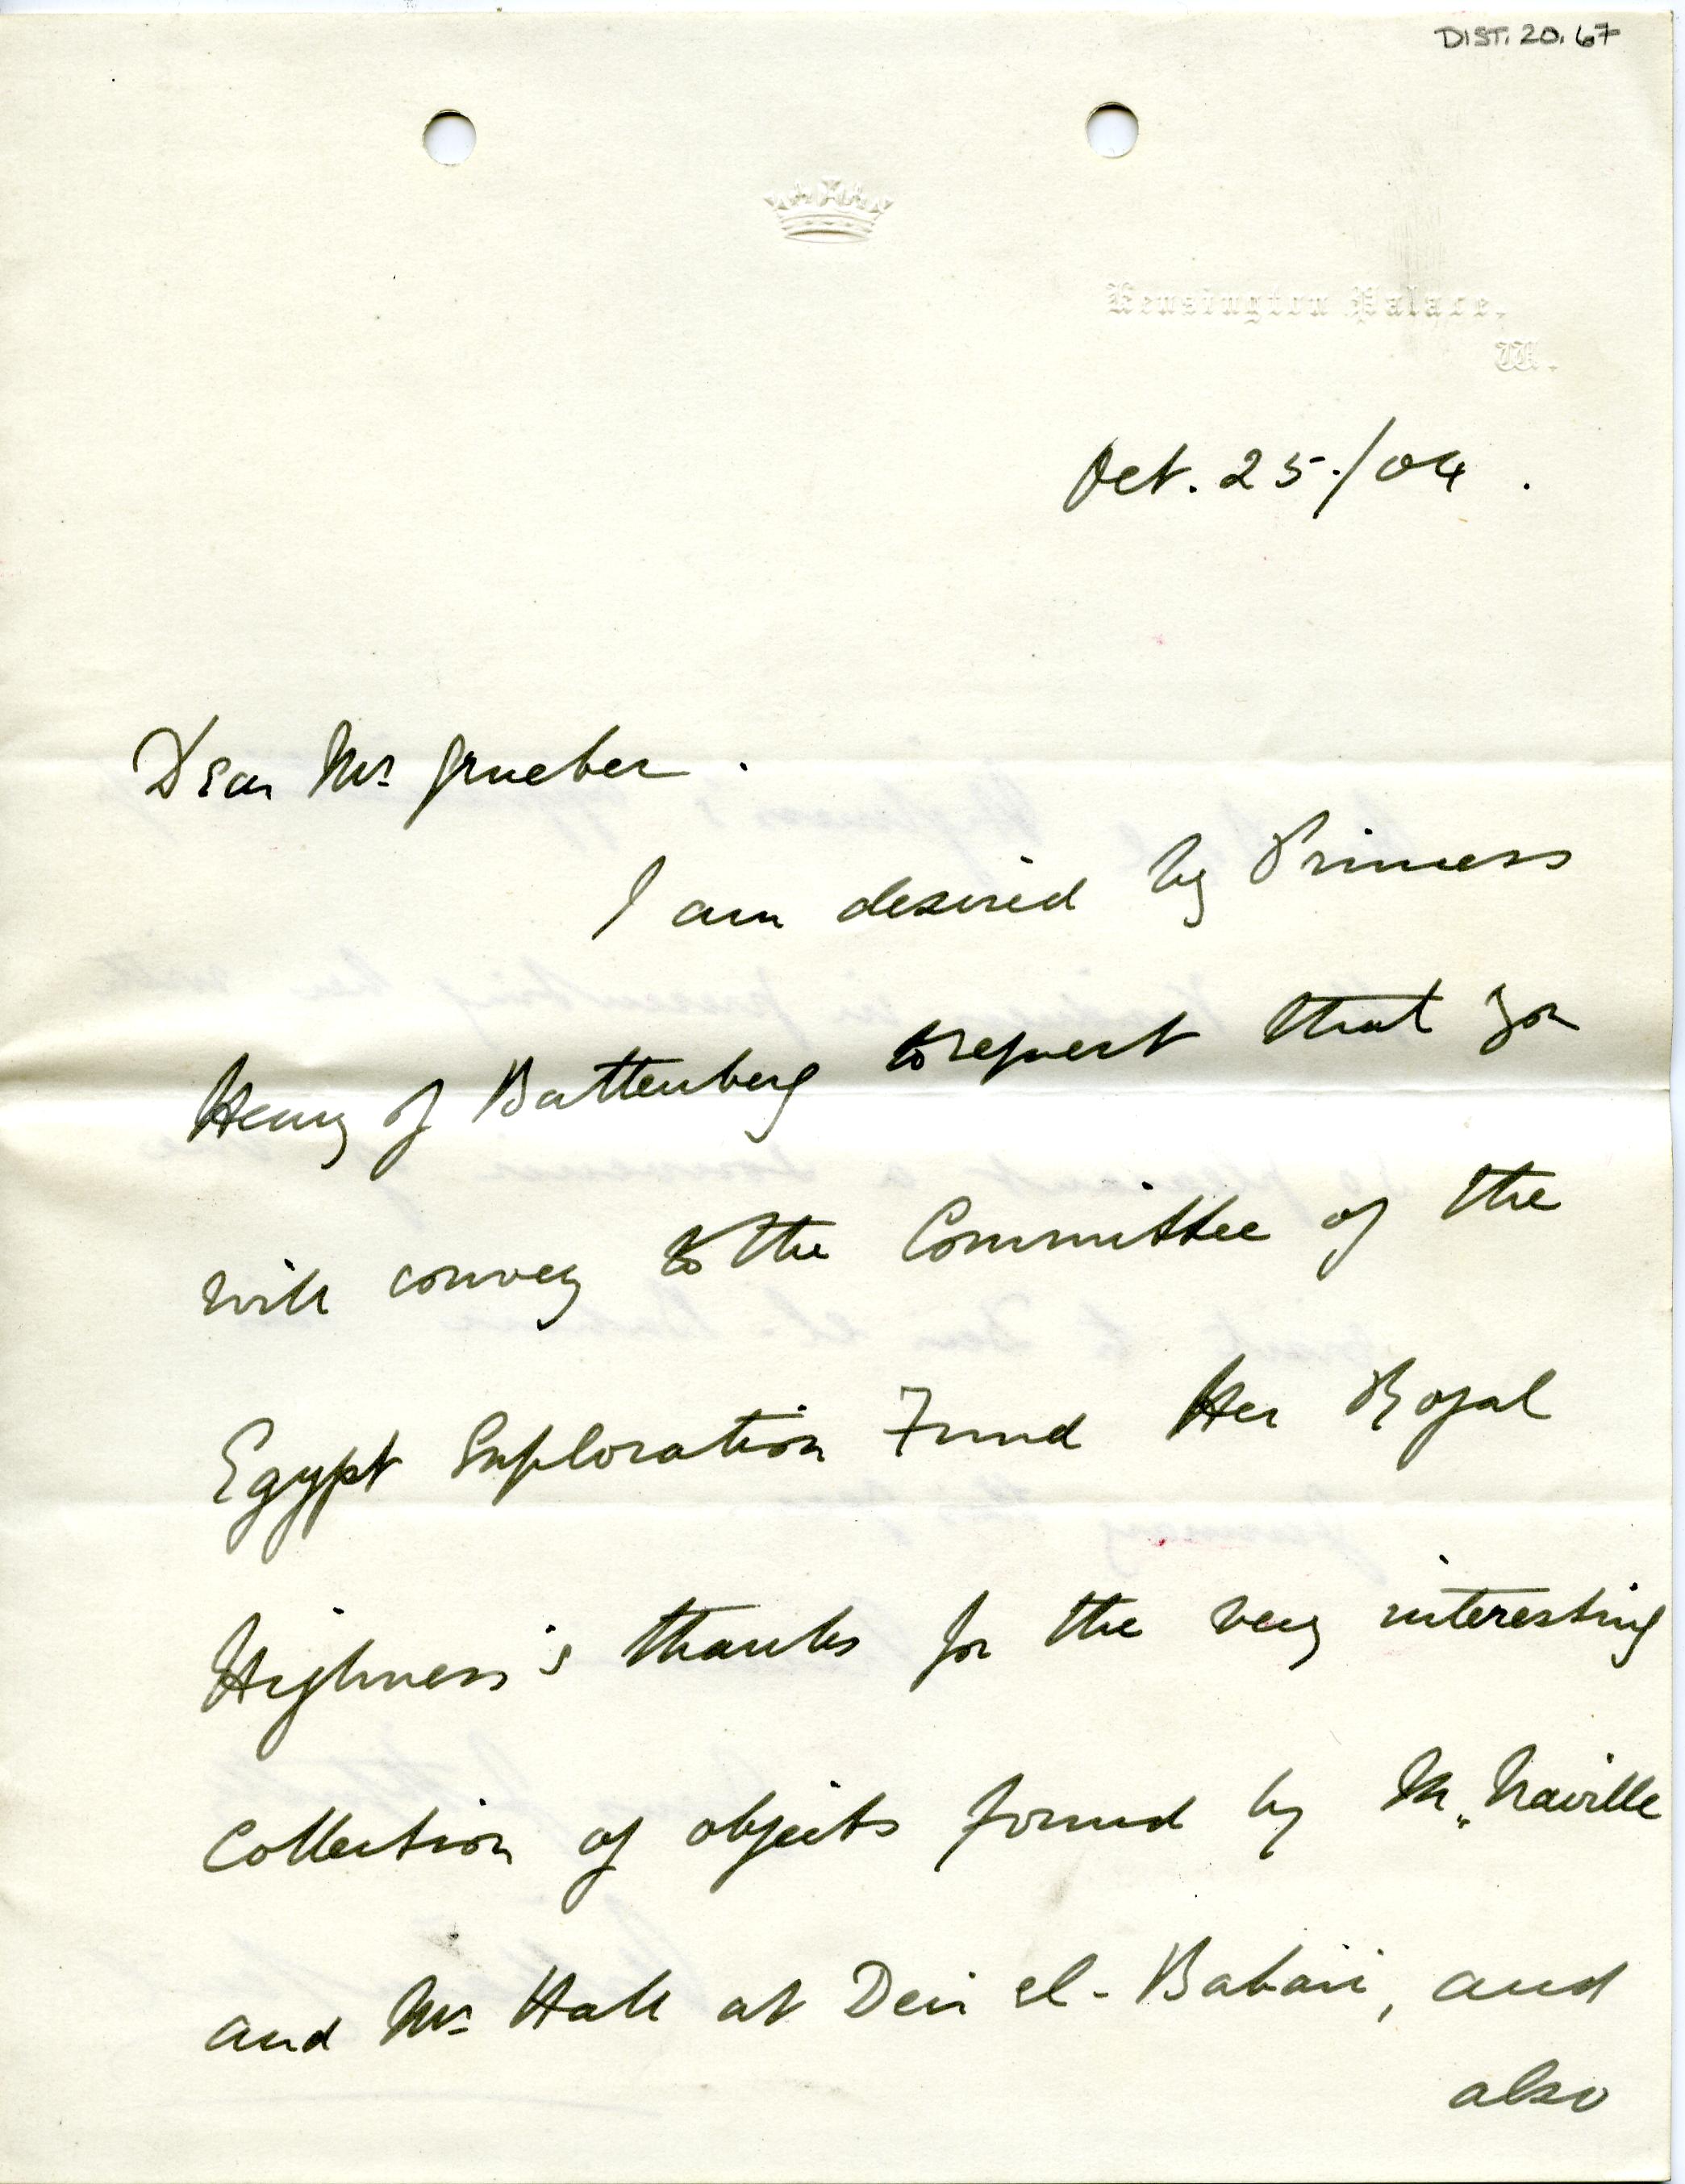 DIST. 20. 67
Kensington Palace,
W.
Oct. 25./04.
Dear Mr Grueber.
I am desired by Princess
Henry of Battenberg to request that you
will convey to the Committee of the
Egypt Exploration Fund Her Royal
Highness's thanks for the very interesting
Collection of objects found by M. Naville
and Mr Hall at Deir el-Bahari, and
also